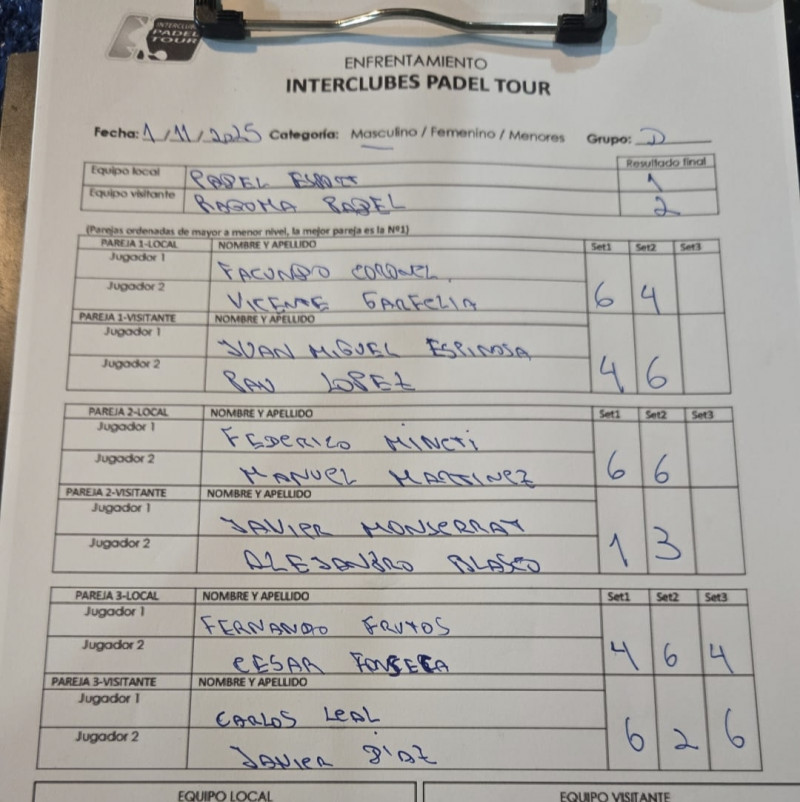 INTERCLUBES
PADEL
TOUR
ENFRENTAMIENTO
INTERCLUBES PADEL TOUR
Fecha: 1/11/2025 Categoría: Masculino / Femenino / Menores Grupo: D
Resultado final
Equipo local PADEL 1
Equipo visitante PADEL 2
(Parejas ordenadas de mayor a menor nivel, la mejor pareja es la Nº1)
PAREJA 1-LOCAL NOMBRE Y APELLIDO Set1 Set2 Set3
Jugador 1 FACUNDO CORONEL
Jugador 2 VICENTE 6 4
PAREJA 1-VISITANTE NOMBRE Y APELLIDO
Jugador 1 JUAN MIGUEL ESPINOSA
Jugador 2 LOPEZ 4 6
PAREJA 2-LOCAL NOMBRE Y APELLIDO Set1 Set2 Set3
Jugador 1 FEDERICO
Jugador 2 MANUEL MARTINEZ 6 6
PAREJA 2-VISITANTE NOMBRE Y APELLIDO
Jugador 1 JAVIER MONSERRAT
Jugador 2 ALEJANDRO BLASCO 1 3
PAREJA 3-LOCAL NOMBRE Y APELLIDO Set1 Set2 Set3
Jugador 1 FERNANDO FRUTOS
Jugador 2 CESAR FONSECA 4 6 4
PAREJA 3-VISITANTE NOMBRE Y APELLIDO
Jugador 1 CARLOS LEAL
Jugador 2 JAVIER DIAZ 6 2 6
EQUIPO LOCAL EQUIPO VISITANTE